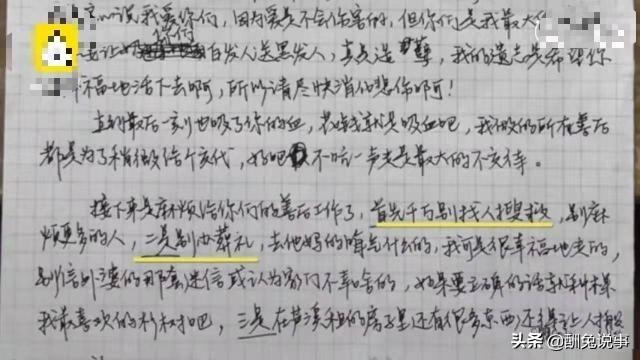 说我爱你们，因为爱是不会伤害的，但你们是我最大
去让你们白发人送黑发人，真是造孽，我的遗志是希望你
幸福地活下去啊，所以请尽快消化悲伤啊！
直到最后一刻也吸了你的血，花钱就是吸血吧，我做的所有善后
都是为了稍微给个交代，好吧不吭一声走是最大的不交待。
接下来是麻烦给你们的善后工作了，首先千万别找人搜救，别麻
烦更多的人，二是别办葬礼，去他妈的晦气什么的，我可是很幸福地走的，
别信外婆的那套迷信或认为家门不幸啥的，如果要立碑的话就种棵
我最喜欢的杉树吧，三是在芦溪租的房子里还有很多东西
头条 @酬兔说事